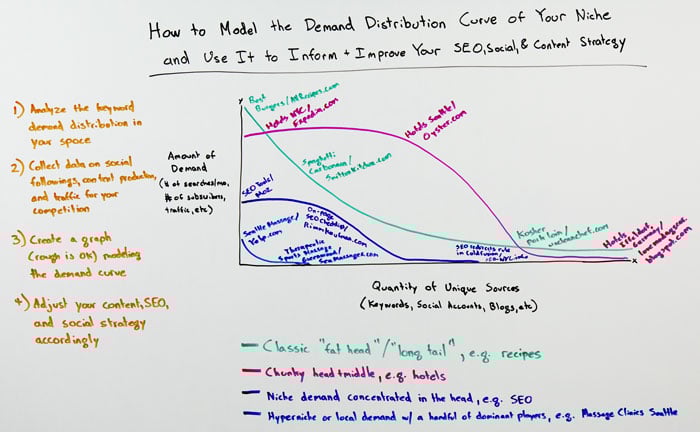 How to Model the Demand Distribution Curve of Your Niche
and Use It to Inform + Improve Your SEO, Social, & Content Strategy
1) Analyze the keyword
demand distribution in
your space
2) Collect data on social
followings, content production,
and traffic for your
competition
3) Create a graph
(rough is OK) modeling
the demand curve
4) Adjust your content, SEO,
and social strategy
accordingly
Amount of
Demand
(# of searches/mo,
# of subscribers,
traffic, etc)
Y
Best
Burgers/Allrecipes.com
Hotels NYC/
Expedia.com
Hotels Seattle/
Oyster.com
Spaghetti
Carbonara/
SEO Tools/
Moz
On-Page
SEO Checkup/
Seattle Massage/
Yelp.com
Therapeutic
Sports Massage
SeaMassage.com
SEO redirects rule
in Coldfusion/
Kosher
Pork Loin/
Hotels
Germany/
blogspot.com
X
Quantity of Unique Sources
(Keywords, Social Accounts, Blogs, etc)
Classic "fat head"/"long tail", e.g. recipes
Chunky head + middle, e.g. hotels
Niche demand concentrated in the head, e.g. SEO
Hyperniche or local demand w/ a handful of dominant players, e.g. Massage Clinics Seattle